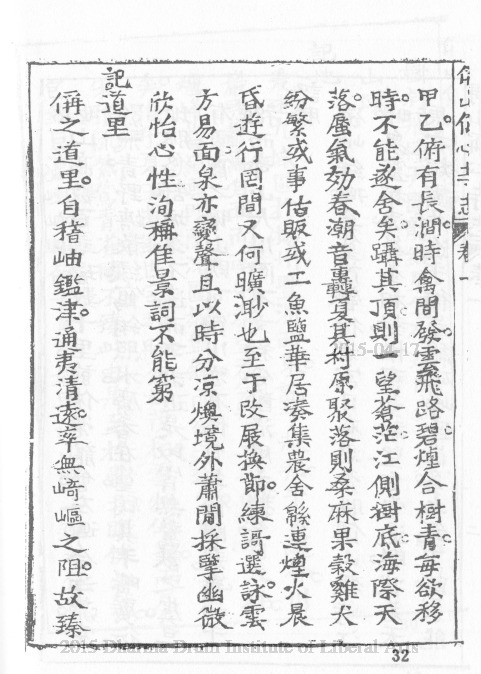 甲乙俯有長澗時禽間發雲飛路碧煙合樹青每欲移
時不能遽舍矣躡其頂則一望蒼茫江側樹底海際天
落蜃氣効春潮音轟夏其村廬聚落則桑麻果穀雞犬
紛繁或事估販或工魚鹽華居湊集農舍緜連煙火晨
昏遊行罔間又何曠渺也至于改展換節練謌選詠雲
方易面泉亦變聲且以時分凉燠境外蕭閒採擥幽微
欣怡心性洵稱佳景詞不能窮
記道里
偁之道里自稽岫鑑津通夷清遠率無崎嶇之阻故臻
偁山偁心寺志 卷一
2015-04-17
32
2015 Dharma Drum Institute of Liberal Arts